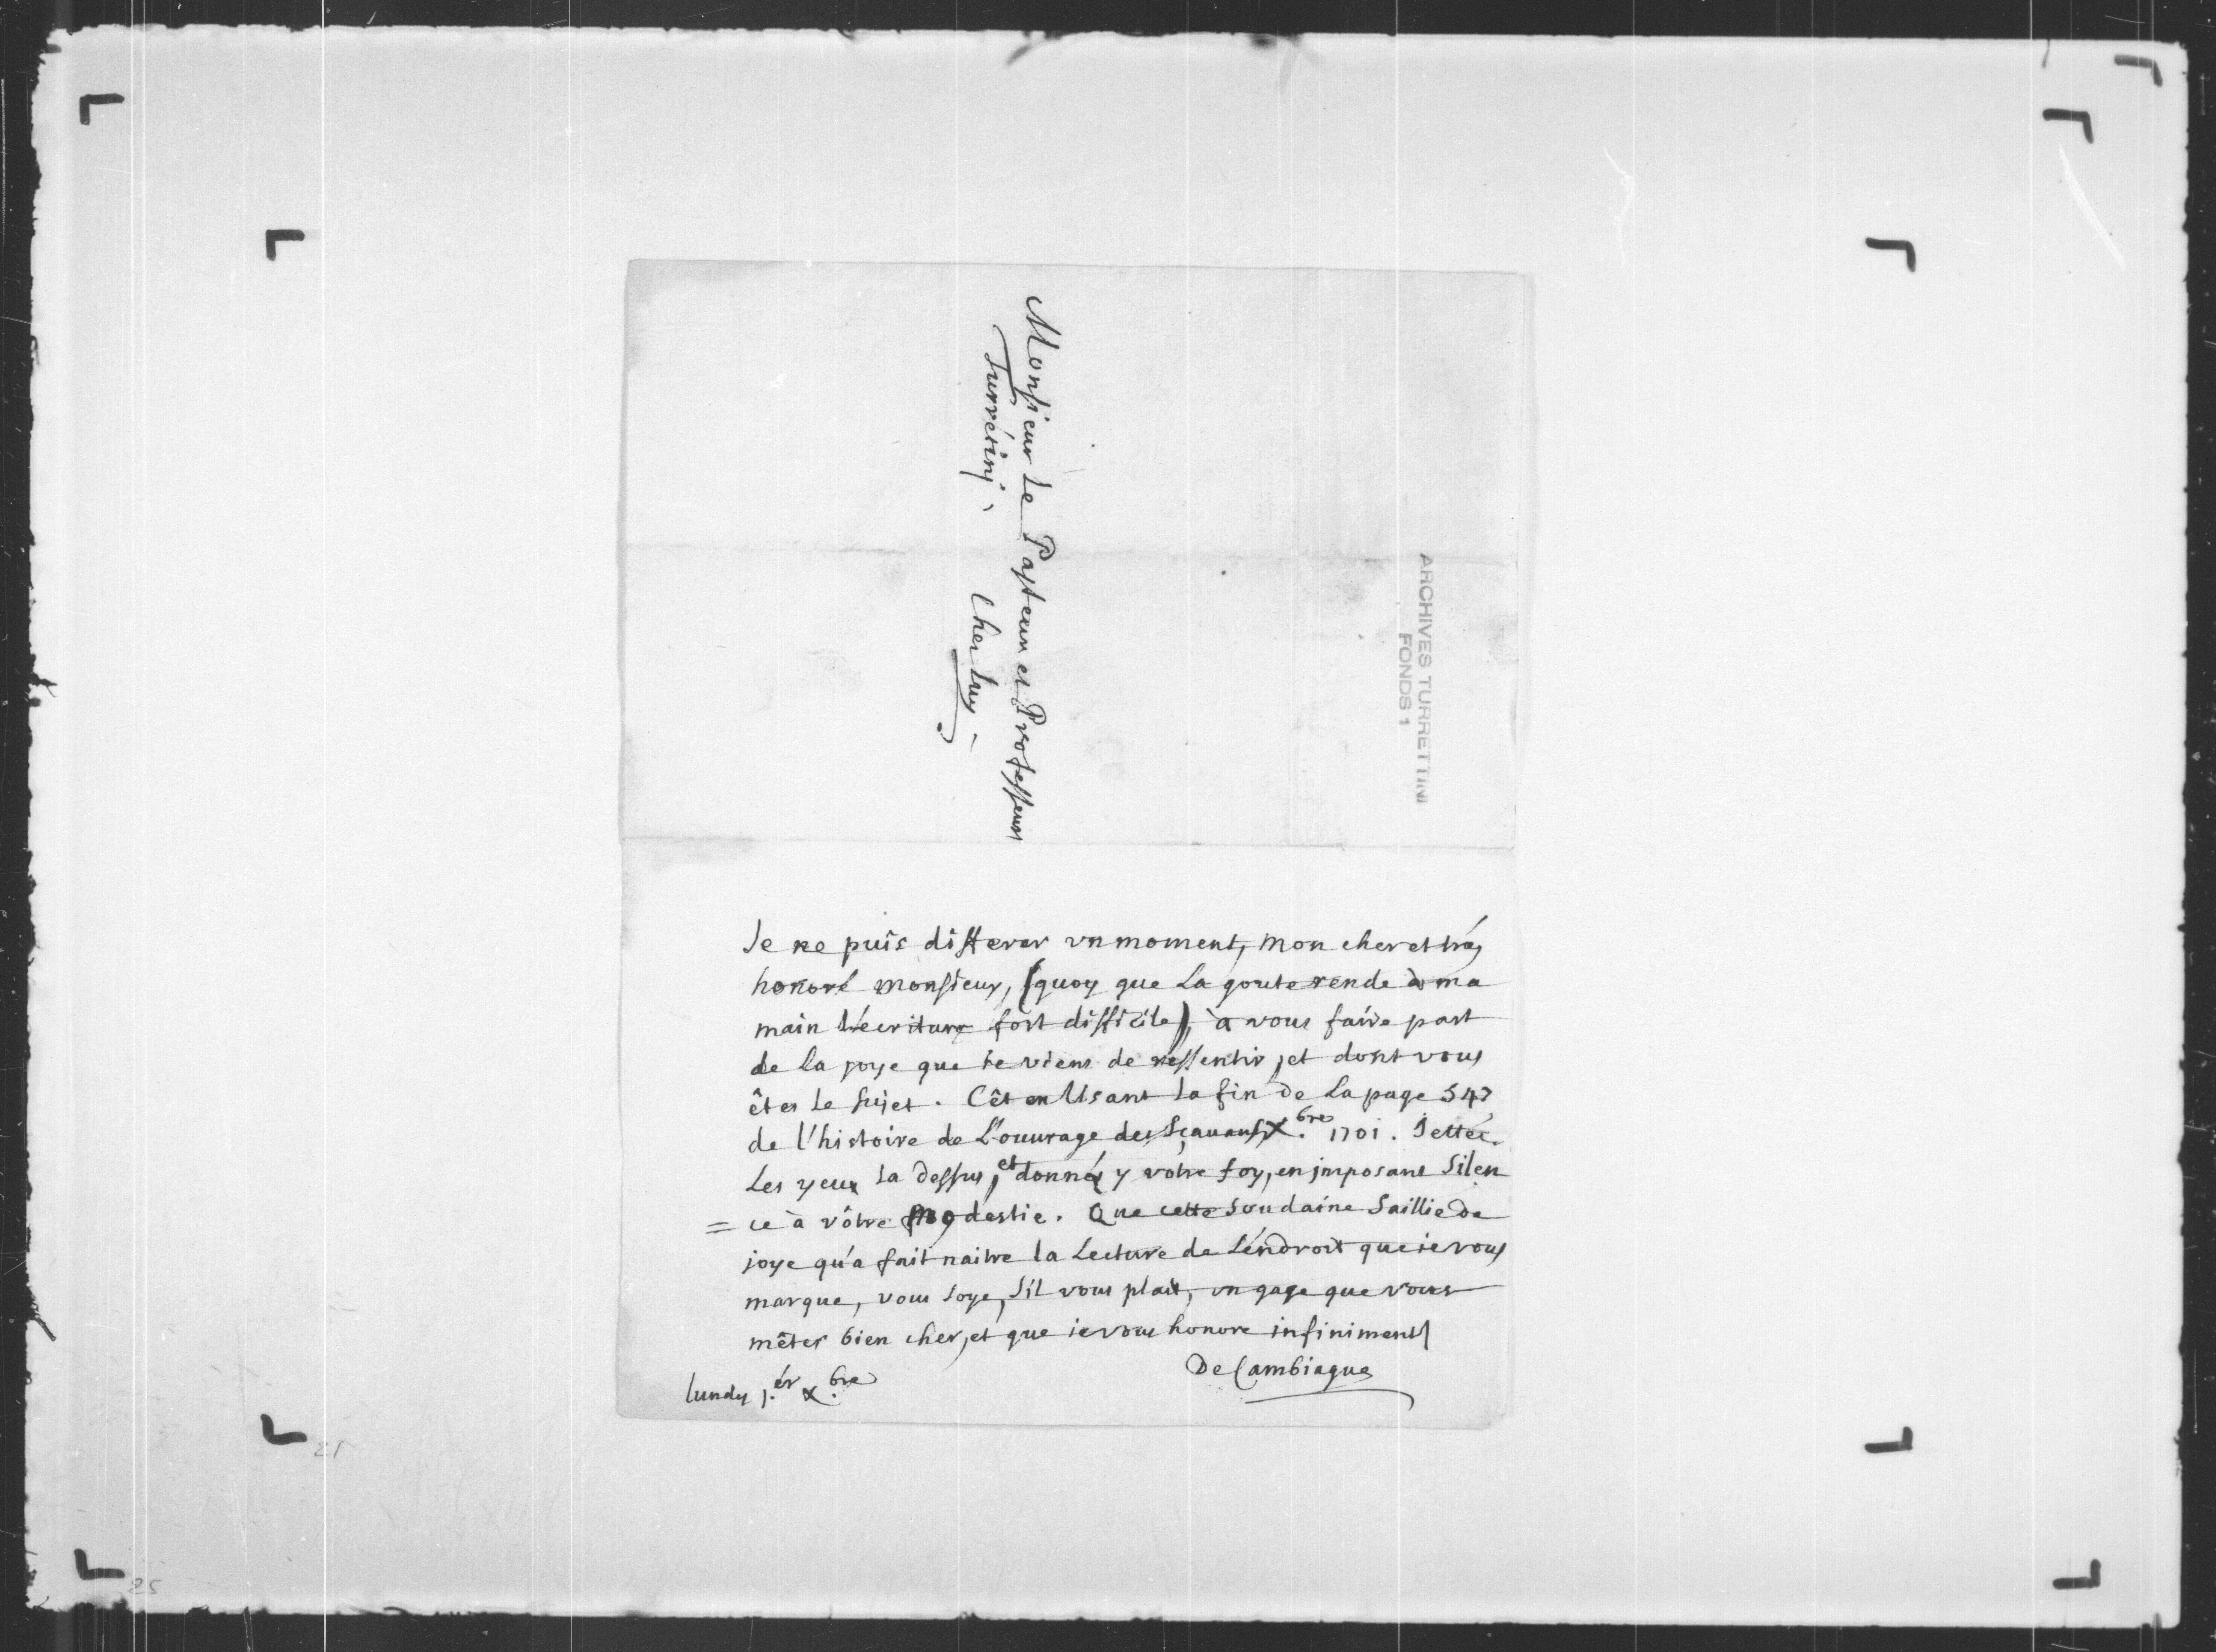 Monsieur Le Pasteur et Professeur
Turretinj,
Chez Luy,
ARCHIVES TURRETTINI
FONDS 1
Je ne puis differer vn moment, mon cher et trés
honoré monsieur, (quoy que La goute rende à ma
main L'écriture fort difficile), à vous faire part
de la joye que ie viens de ressentir, et dont vous
êtes Le sujet. C'êt en Lisant La fin de La page 547
de l'histoire de L'ouurage des Sçauans X.bre 1701. Jettéz
Les yeux La dessus, et donnéz y votre foy, en jmposant Silen
= ce à vôtre modestie. Que cette soudaine Saillie de
joye qu'a fait naitre la Lecture de L'éndroit que ie vous
marque, vous soye, s'il vous plait, vn gage que vous
mêtes bien cher, et que ie vous honore infiniment
De Cambiague
lundy j.er X.bre
21
25